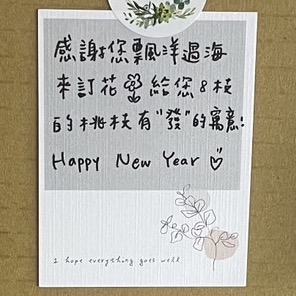 感謝您飄洋過海
來訂花 給您8枝
的桃枝有"發"的寓意!
Happy New Year
I hope everything goes well